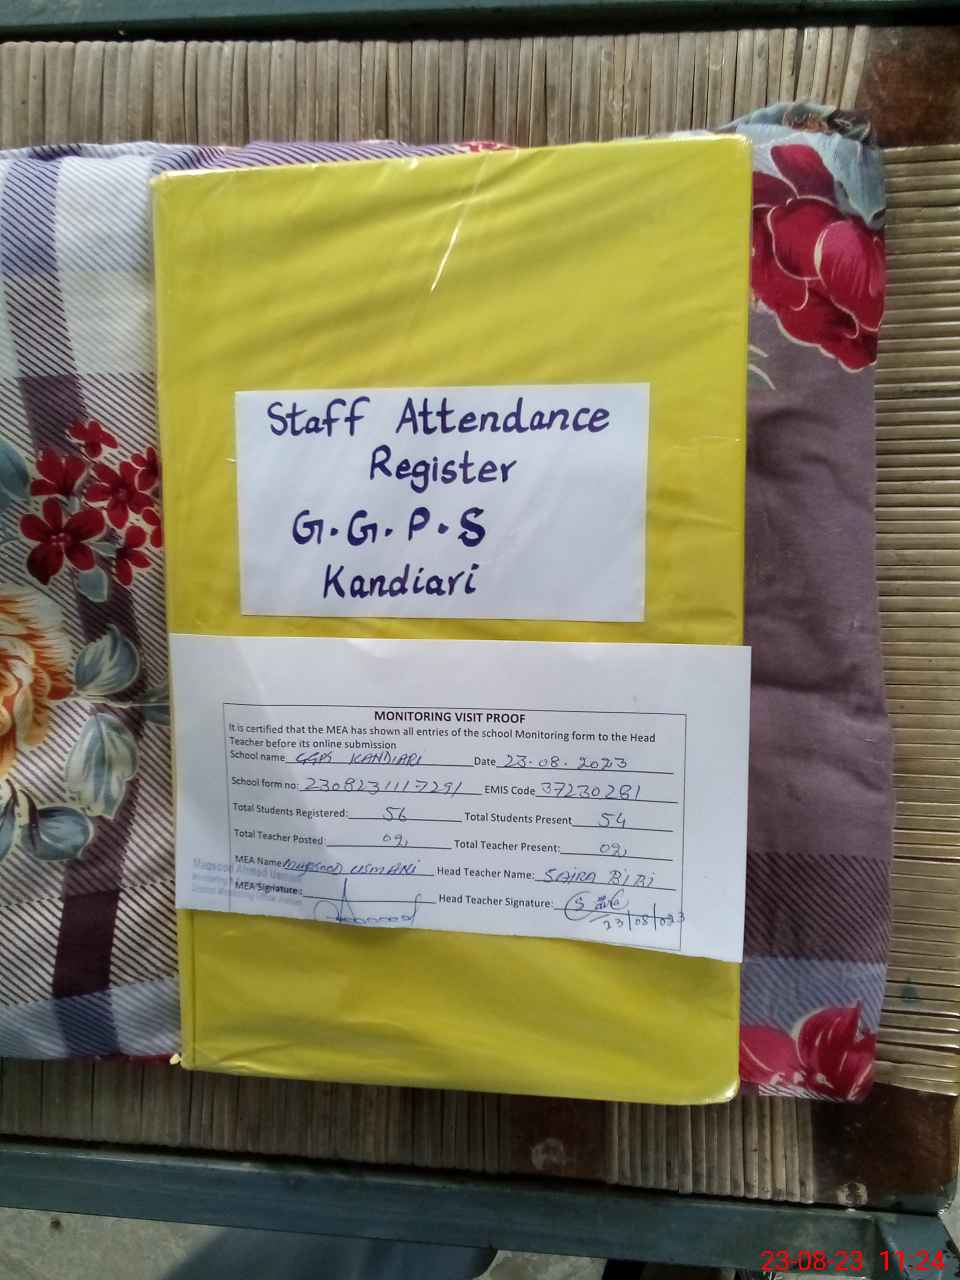 Staff Attendance
Register
G.G.P.S
Kandiari
MONITORING VISIT PROOF
It is certified that the MEA has shown all entries of the school Monitoring form to the Head
Teacher before its online submission
School name GGPS KANDIARI Date 23.08.2023
School form no: 2308231117291 EMIS Code 37230281
Total Students Registered: 56 Total Students Present 54
Total Teacher Posted: 02 Total Teacher Present: 02
MEA Name: Muqsood USMANI Head Teacher Name: SAIRA BIBI
Muqsood Ahmad Usmani
MEA Signature: Head Teacher Signature:
23/08/023
23-08-23 11:24